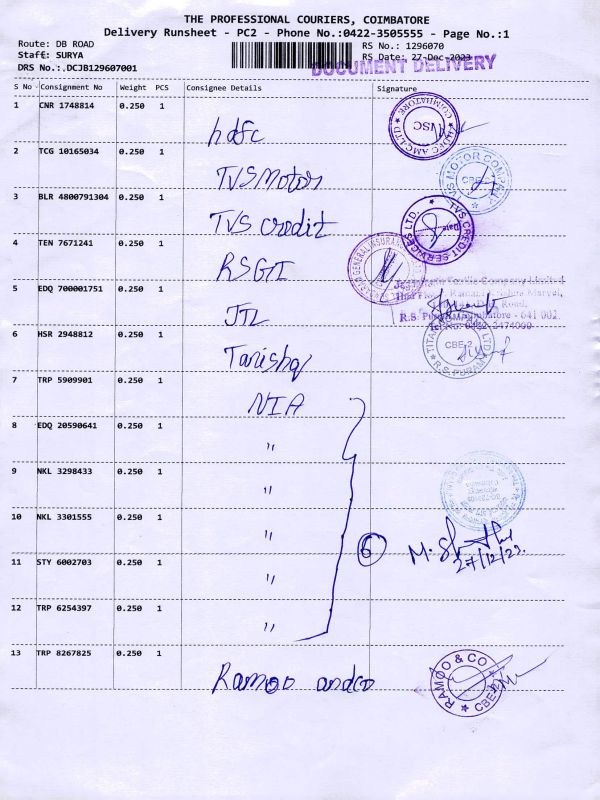 THE PROFESSIONAL COURIERS, COIMBATORE
Delivery Runsheet - PC2 - Phone No.:0422-3505555 - Page No.:1
Route: DB ROAD
RS No.: 1296070
Staff: SURYA
RS Date: 27-Dec-2023
DRS No.:.DCJB129607001
DOCUMENT DELIVERY
S No Consignment No Weight PCS Consignee Details Signature
1 CNR 1748814 0.250 1 hdfc
HDFC AMC LTD COIMBATORE
2 TCG 10165034 0.250 1 TVS Motor
TVS MOTOR COMPANY CBE-2
3 BLR 4800791304 0.250 1 TVS credit
TVS CREDIT SERVICES LTD. Date
4 TEN 7671241 0.250 1 RSGI
5 EDQ 700001751 0.250 1 JTL
R.S. Puram, Coimbatore - 641 002.
Tel No: 0422-2474000
6 HSR 2948812 0.250 1 Tanishq
TITAN LTD. CBE-2 R.S. PURAM
7 TRP 5909901 0.250 1 NIA
8 EDQ 20590641 0.250 1 "
9 NKL 3298433 0.250 1 "
10 NKL 3301555 0.250 1 "
6 M.
27/12/23.
11 STY 6002703 0.250 1 "
12 TRP 6254397 0.250 1 "
13 TRP 8267825 0.250 1 Ramoo andco
RAMOO & CO CBE-2